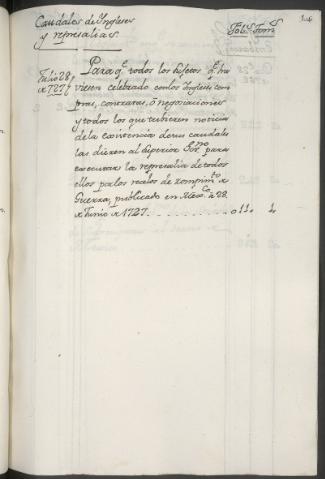 Caudales de Ingleses
y represalias.
Fol.s Tom.s
Julio 28,
de 727,,
Para q.e todos los sujetos q.e hu
viesen celebrado con los Ingleses com
pras, contratas, ó negociaciones
y todos los que tubieren noticia
de la existencia de sus caudales
las dieran al Superior Gov.no para
executar la represalia de todos
ellos por los recelos de rompim.to de
Guerra, publicado en Mexico à 28
de Junio de 1727
011